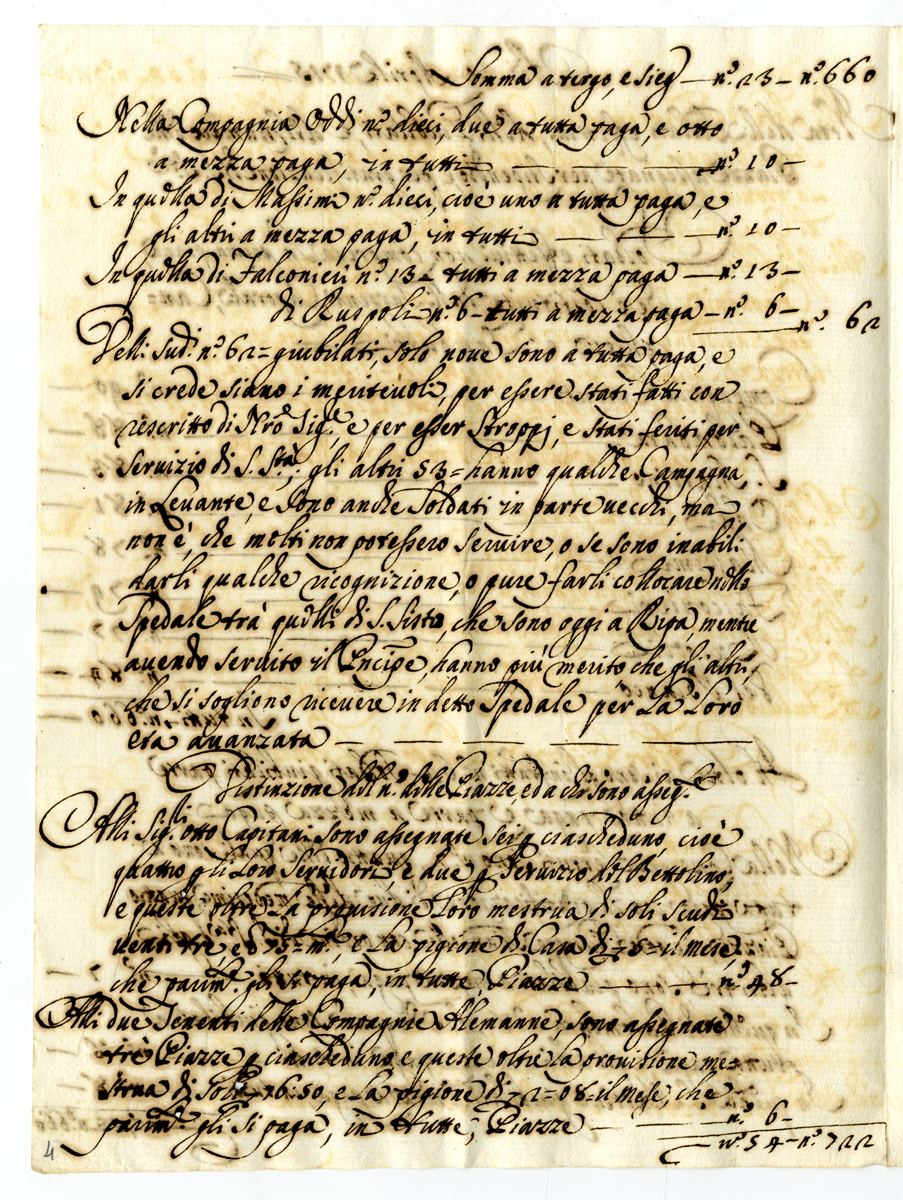 Somma a tergo, e sieg — n.º 23 — n.º 660
Nella Compagnia Oddi n.º dieci, due a tutta paga, e otto
a mezza paga, in tutti — n.º 10 —
In quella di Massimi n.º dieci, cioè uno a tutta paga, e
gli altri a mezza paga, in tutti — n.º 10 —
In quella di Falconieri n.º 13 = tutti a mezza paga — n.º 13 —
di Ruspoli n.º 6 — tutti a mezza paga — n.º 6 — n.º 62
Delli sud.i n.º 62 = giubilati, solo nove sono a tutta paga, e
si crede siano i meritevoli, per essere stati fatti con
rescritto di Nrõ Sig.e e per esser stroppj, e stati feriti per
servizio di S. S.tà; gli altri 53 = hanno qualche Campagna,
in Levante, e sono anche soldati in parte vecchi, ma
non è, che molti non potessero servire, o se sono inabili
darli qualche ricognizione, o pure farli collocare nello
Spedale trà quelli di S. Sisto, che sono oggi a Ripa, mentre
avendo servito il Pncipe, hanno più merito, che gli altri,
che si sogliono ricevere in detto Spedale per La Loro
età avanzata —
Distinzione del n.º delle Piazze, ed a chi sono asseg.te
Alli Sig.li otto Capitani sono assegnate sei p ciascheduno, cioè
quattro p gli Loro Servidori, e due p Servizio del Bettolino,
e queste oltre La provisione Loro mestrua di soli scudi
venti tre, e 75 = m.ta, e La pigione di Casa di 5 = il mese,
che parim.te gli si paga, in tutte Piazze — n.º 48 —
Alli due Tenenti delle Compagnie Alemanne, sono assegnate
trè Piazze p ciascheduno e queste oltre la provisione me=
strua di soli 16:50, e La pigione di 2=08= il mese, che
parim.te gli si paga, in tutte, Piazze — n.º 6 —
n.º 54 — n.º 722
4